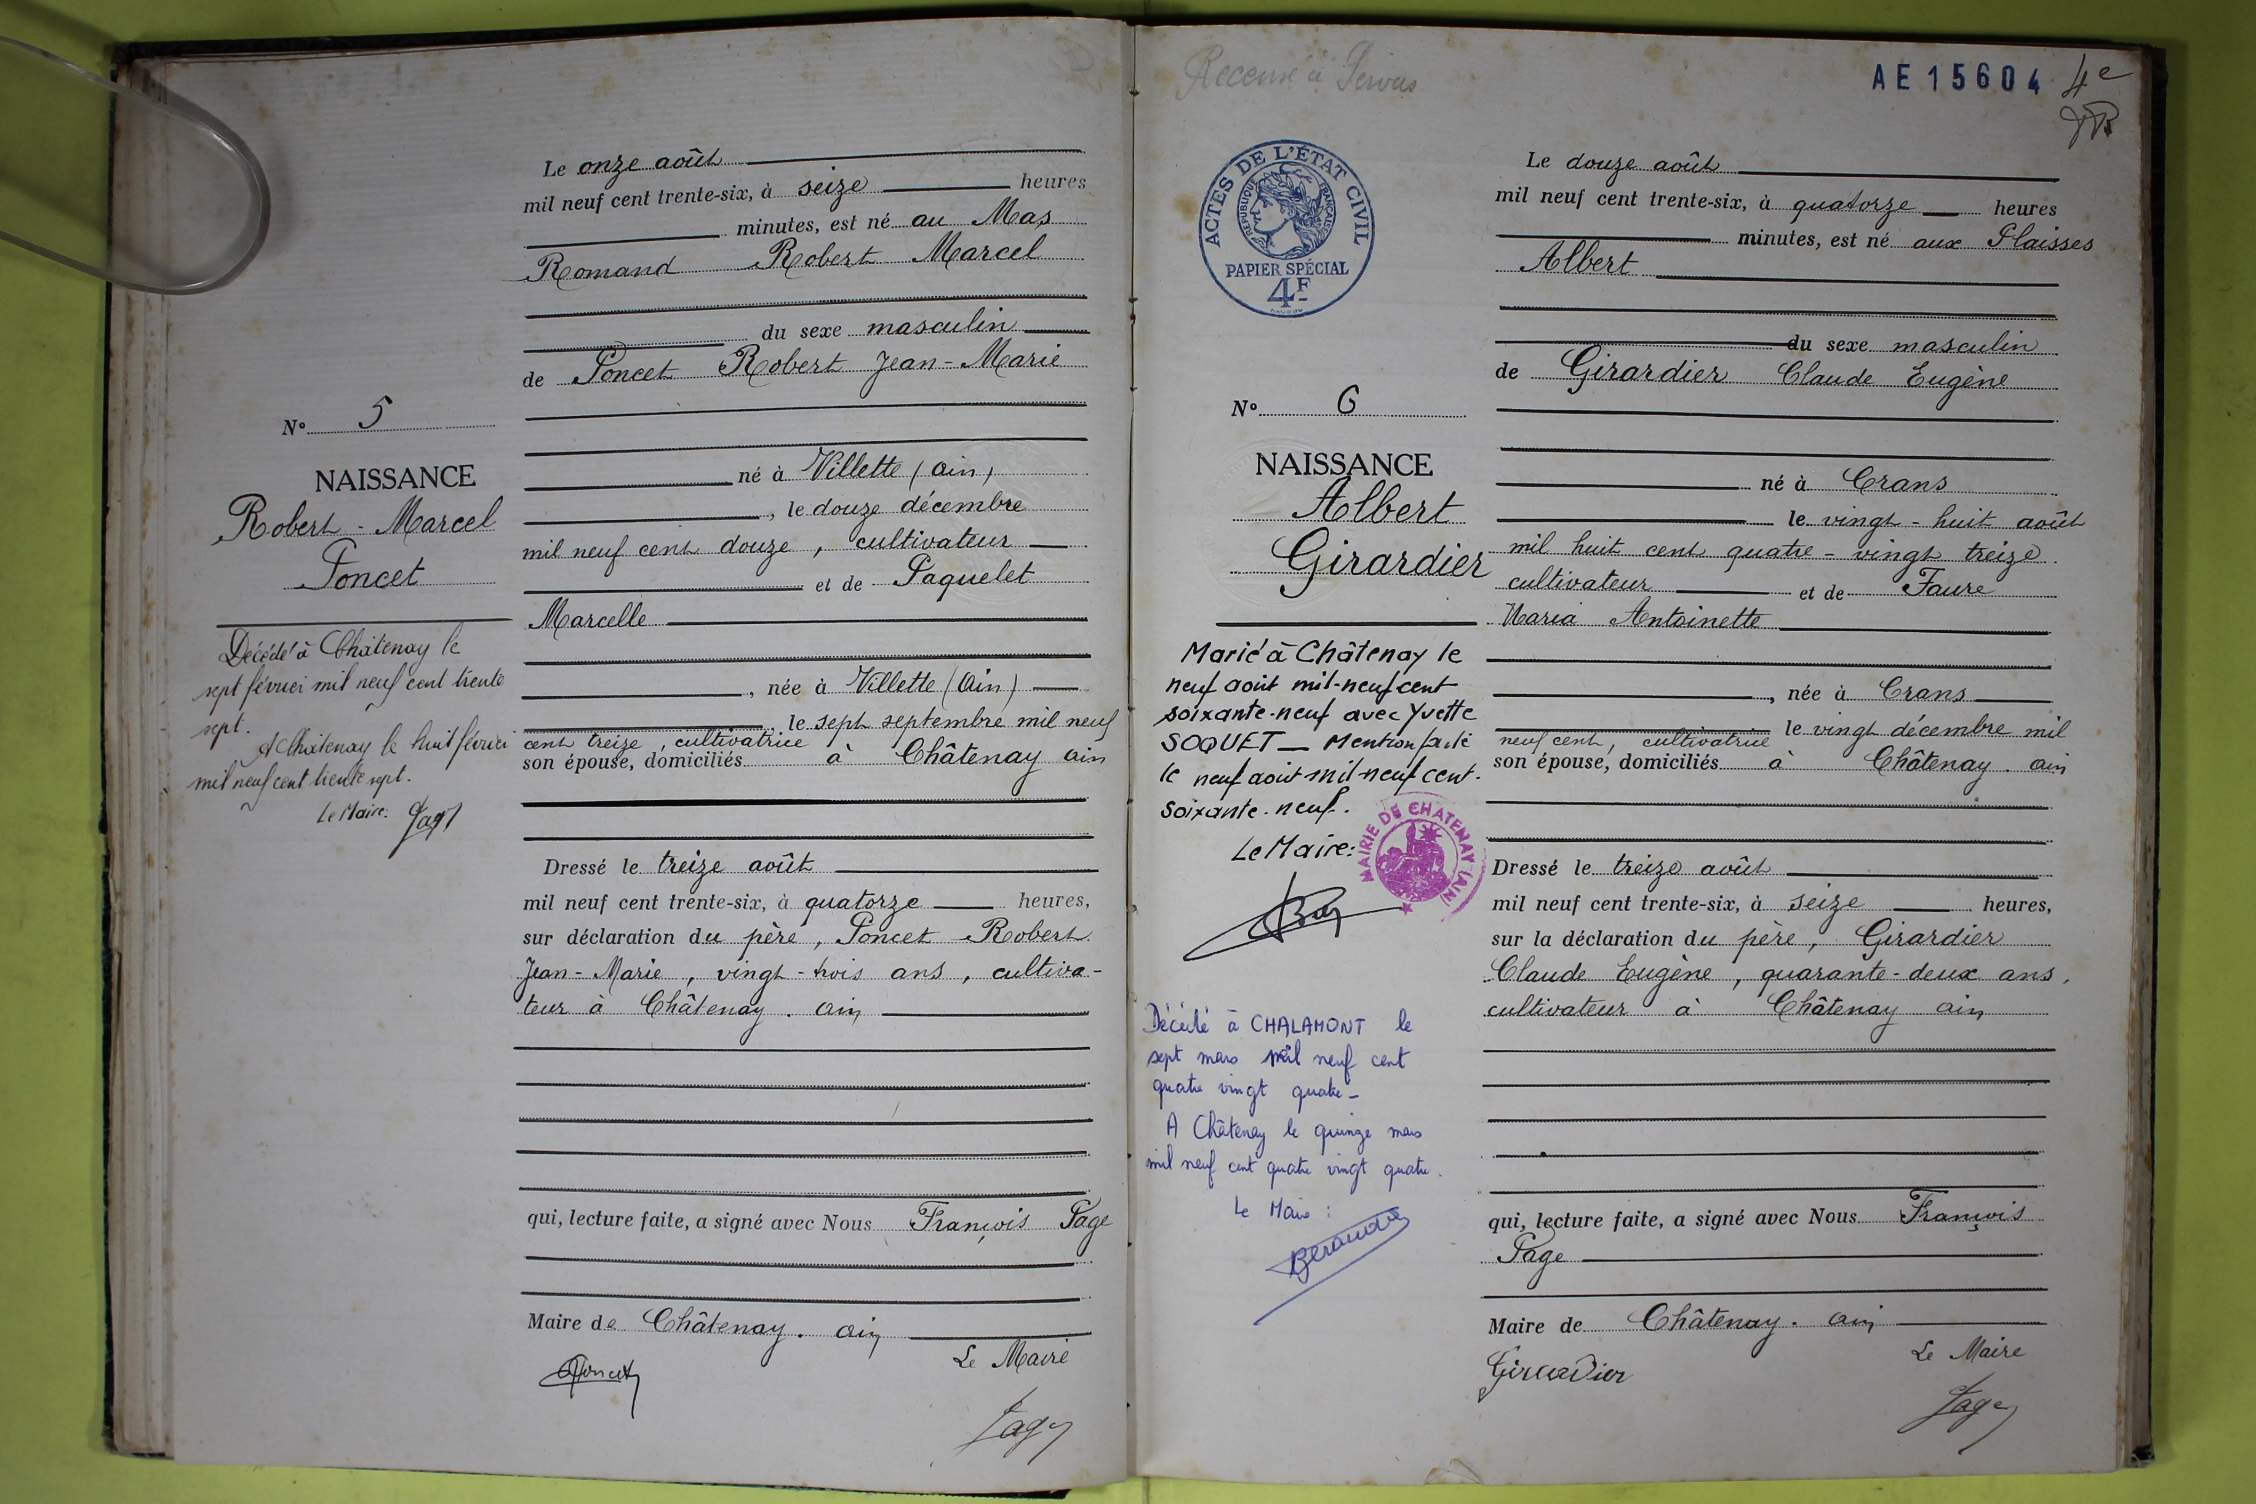 Le onze août
mil neuf cent trente-six, à seize heures
minutes, est né au Mas
Romand Robert Marcel
du sexe masculin
de Poncet Robert Jean-Marie
né à Villette (ain)
, le douze décembre
mil neuf cent douze, cultivateur
et de Paquelet
Marcelle
, née à Villette (Ain)
, le sept septembre mil neuf
cent treize, cultivatrice
son épouse, domiciliés à Châtenay ain
Dressé le treize août
mil neuf cent trente-six, à quatorze heures,
sur déclaration du père, Poncet Robert
Jean-Marie, vingt-trois ans, cultiva-
teur à Châtenay. ain
qui, lecture faite, a signé avec Nous François Page
Maire de Châtenay. ain
Le Maire
Poncet
Page
No 5
NAISSANCE
Robert-Marcel
Poncet
Décédé à Châtenay le
sept février mil neuf cent trente
sept.
A Châtenay le huit février
mil neuf cent trente sept.
Le Maire: Page
Recensé à
AE15604
4e
ACTES DE L'ÉTAT CIVIL
RÉPUBLIQUE FRANÇAISE
PAPIER SPÉCIAL
4F
No 6
NAISSANCE
Albert
Girardier
Marié à Châtenay le
neuf août mil-neuf cent
soixante-neuf avec Yvette
SOQUET_ Mention faite
le neuf août mil-neuf cent.
soixante-neuf.
Le Maire:
MAIRIE DE CHATENAY (AIN)
Décédé à CHALAMONT le
sept mars mil neuf cent
quatre vingt quatre-
A Châtenay le quinze mars
mil neuf cent quatre vingt quatre.
Le Maire:
Beraudo
Le douze août
mil neuf cent trente-six, à quatorze heures
minutes, est né aux Plaisses
Albert
du sexe masculin
de Girardier Claude Eugène
né à Crans
le vingt-huit août
mil huit cent quatre-vingt treize
cultivateur et de Faure
Maria Antoinette
, née à Crans
le vingt décembre mil
neuf cent, cultivatrice
son épouse, domiciliés à Châtenay. ain
Dressé le treize août
mil neuf cent trente-six, à seize heures,
sur la déclaration du père, Girardier
Claude Eugène, quarante-deux ans,
cultivateur à Châtenay ain
qui, lecture faite, a signé avec Nous François
Page
Maire de Châtenay. ain
Le Maire
Girardier
Page